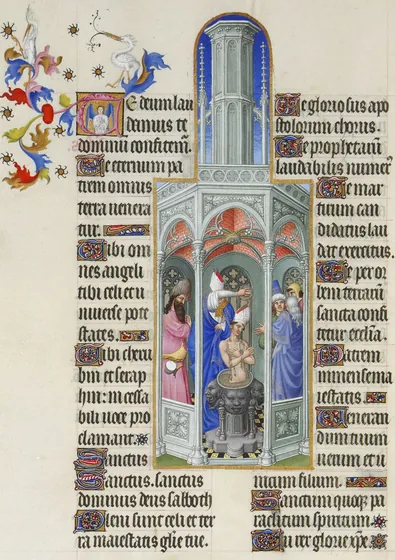 Te deum lau
damus te
dominū confitem̃.
Te eternum pa
trem omnis
terra uenera
tur.
Tibi om
nes angeli
tibi celi et u
niuerse pote
states.
Tibi cheru
bin et serap
hin: incessa
bili uoce pro
clamant.
Sanctus
Sanctus. sanctus
dominus deus sabboth
Pleni sunt celi et ter
ra maiestatis gl̃ie tue.
Te gloriosus apo
stolorum chorus.
Te prophetarũ
laudabilis numer᷒
Te mar
tirum can
didatus lau
dat exercitus.
Te per or
bem terrarũ
sancta confi
tetur eccl̃ia.
Patrem
inmense ma
iestatis.
Ueneran
dum tuum
uerum et u
nicum filium.
Sanctum quoqꝫ pa
raclitum spiritum.
Tu rex glorie xp̃e.